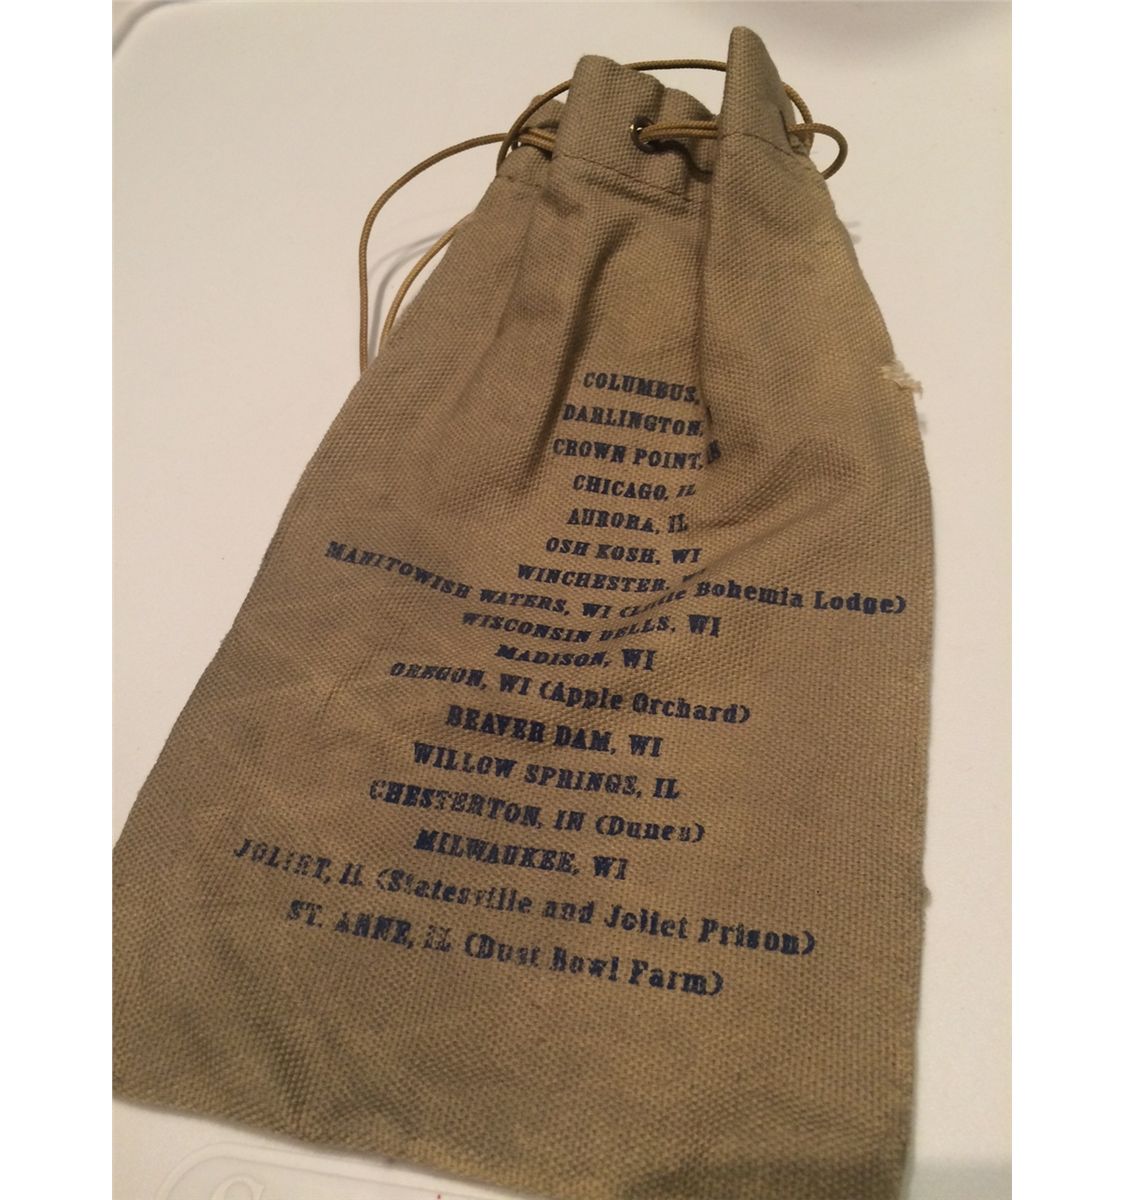 COLUMBUS,
DARLINGTON,
CROWN POINT,
CHICAGO, IL
AURORA, IL
OSH KOSH, WI
WINCHESTER,
MANITOWISH WATERS, WI (Little Bohemia Lodge)
WISCONSIN DELLS, WI
MADISON, WI
OREGON, WI (Apple Orchard)
BEAVER DAM, WI
WILLOW SPRINGS, IL
CHESTERTON, IN (Dunes)
MILWAUKEE, WI
JOLIET, IL (Statesville and Joliet Prison)
ST. ANNE, IL (Dust Bowl Farm)